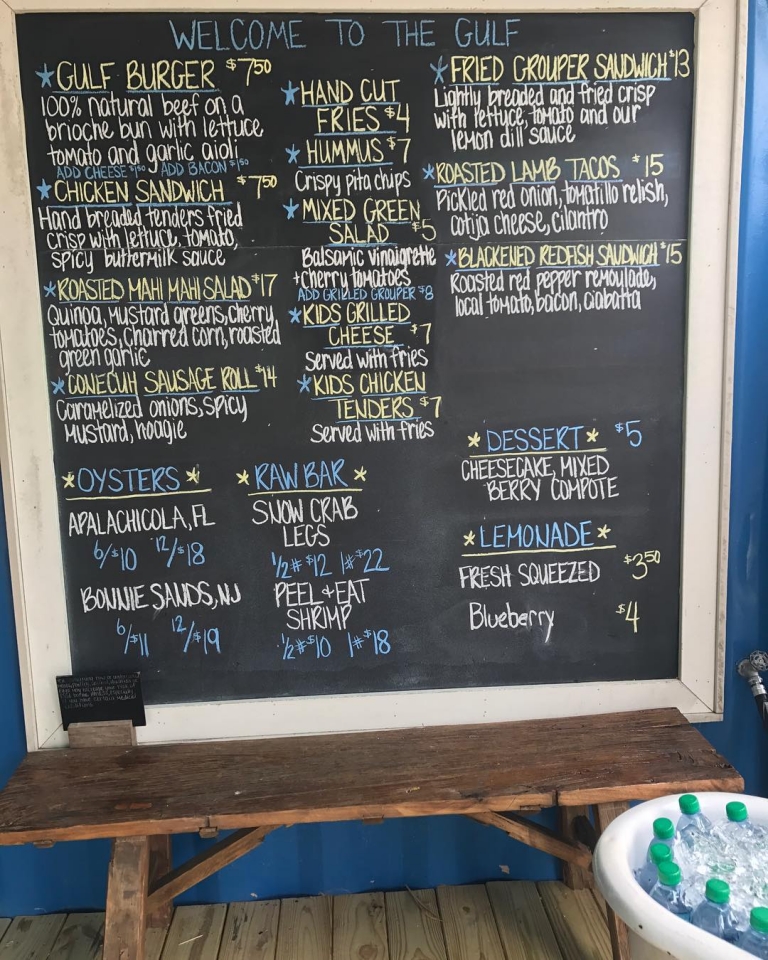 WELCOME TO THE GULF
GULF BURGER $7⁵⁰
100% natural beef on a
brioche bun with lettuce
tomato and garlic aioli
ADD CHEESE $1⁵⁰ ADD BACON $1⁵⁰
CHICKEN SANDWICH $7⁵⁰
Hand breaded tenders fried
crisp with lettuce, tomato,
spicy buttermilk sauce
ROASTED MAHI MAHI SALAD $17
Quinoa, mustard greens, cherry
tomatoes, charred corn, roasted
green garlic
CONECUH SAUSAGE ROLL $14
Caramelized onions, spicy
mustard, hoagie
HAND CUT
FRIES $4
HUMMUS $7
Crispy pita chips
MIXED GREEN
SALAD $5
Balsamic vinaigrette
+cherry tomatoes
ADD GRILLED GROUPER $8
KIDS GRILLED
CHEESE $7
Served with fries
KIDS CHICKEN
TENDERS $7
Served with fries
FRIED GROUPER SANDWICH $13
Lightly breaded and fried crisp
with lettuce, tomato and our
lemon dill sauce
ROASTED LAMB TACOS $15
Pickled red onion, tomatillo relish,
cotija cheese, cilantro
BLACKENED REDFISH SANDWICH $15
Roasted red pepper remoulade,
local tomato, bacon, ciabatta
OYSTERS
APALACHICOLA, FL
6/$10 12/$18
BONNIE SANDS, NJ
6/$11 12/$19
RAW BAR
SNOW CRAB
LEGS
1/2# $12 1# $22
PEEL + EAT
SHRIMP
1/2# $10 1# $18
DESSERT $5
CHEESECAKE, MIXED
BERRY COMPOTE
LEMONADE
FRESH SQUEEZED $3⁵⁰
Blueberry $4